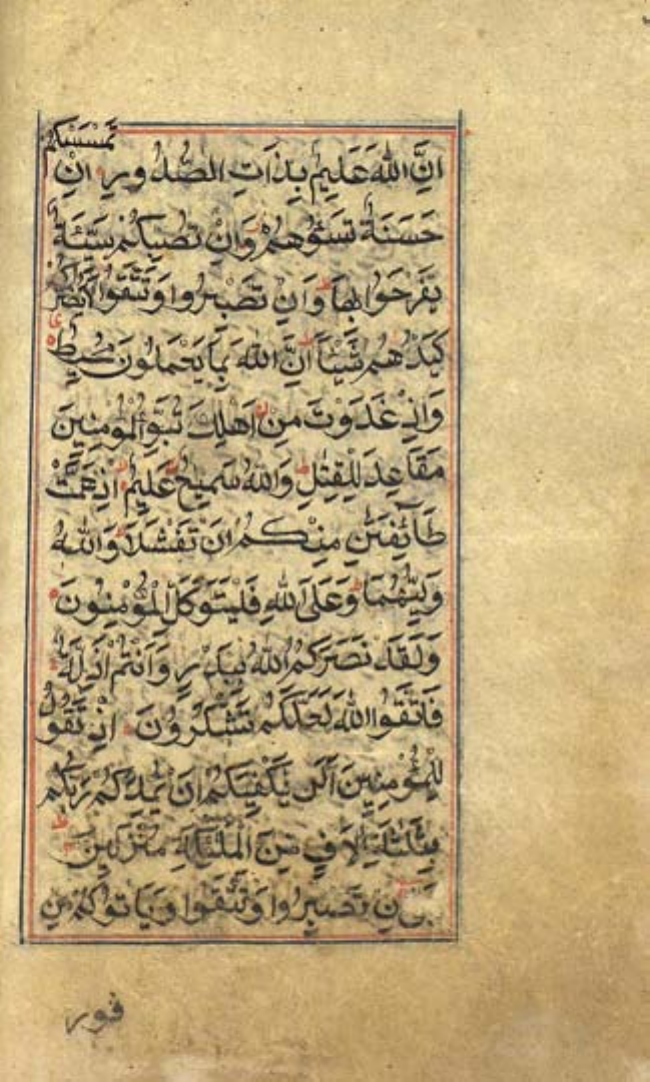 تَمْسَسْكُمْ
اِنَّ اللهَ عَلِيمٌ بِذَاتِ الصُّدُورِ اِنْ
حَسَنَةٌ تَسُؤْهُمْ وَاِنْ تُصِبْكُمْ سَيِّئَةٌ
يَفْرَحُوا بِهَا وَاِنْ تَصْبِرُوا وَتَتَّقُوا لَا يَضُرُّكُمْ
كَيْدُهُمْ شَيْئًا اِنَّ اللهَ بِمَا يَعْمَلُونَ مُحِيطٌ
وَاِذْ غَدَوْتَ مِنْ اَهْلِكَ تُبَوِّئُ الْمُؤْمِنِينَ
مَقَاعِدَ لِلْقِتٰلِ وَاللهُ سَمِيعٌ عَلِيمٌ اِذْ هَمَّتْ
طَآئِفَتٰنِ مِنْكُمْ اَنْ تَفْشَلَا وَاللهُ
وَلِيُّهُمَا وَعَلَى اللهِ فَلْيَتَوَكَّلِ الْمُؤْمِنُونَ
وَلَقَدْ نَصَرَكُمُ اللهُ بِبَدْرٍ وَاَنْتُمْ اَذِلَّةٌ
فَاتَّقُوا اللهَ لَعَلَّكُمْ تَشْكُرُونَ اِذْ تَقُولُ
لِلْمُؤْمِنِينَ اَلَنْ يَكْفِيَكُمْ اَنْ يُمِدَّكُمْ رَبُّكُمْ
بِثَلٰثَةِ اٰلَافٍ مِنَ الْمَلٰئِكَةِ مُنْزَلِينَ
بَلٰى اِنْ تَصْبِرُوا وَتَتَّقُوا وَيَاْتُوكُمْ مِنْ
فور